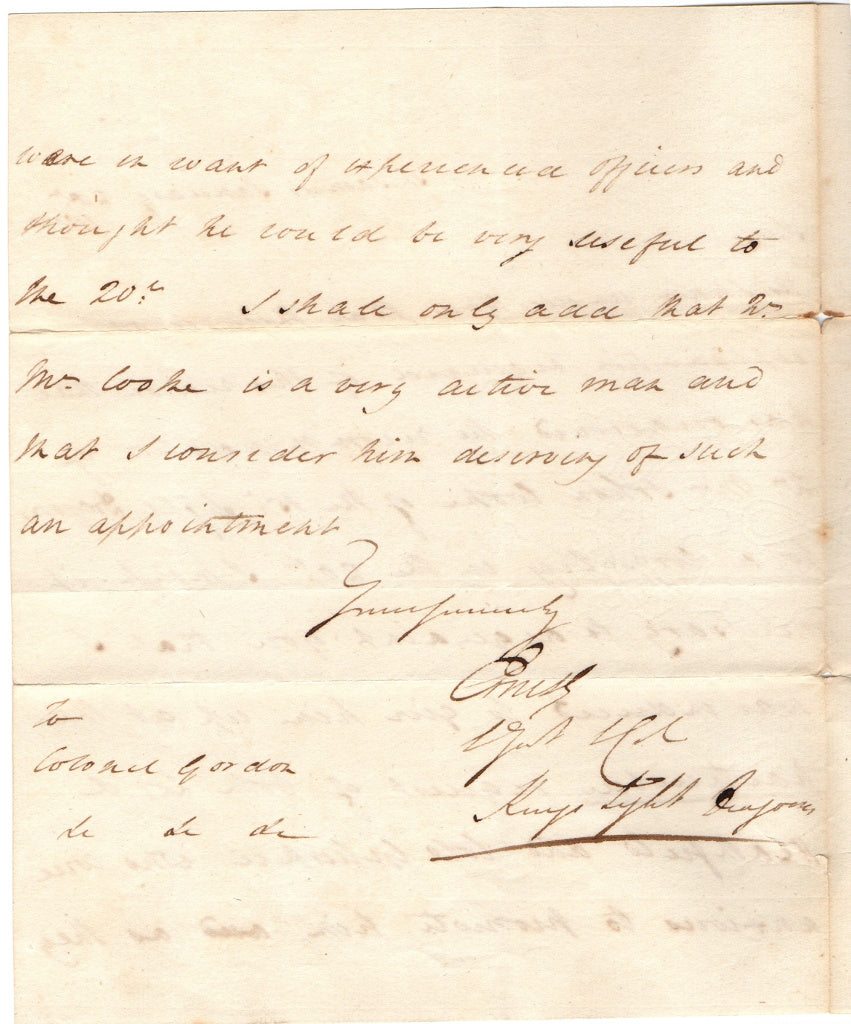 were in want of experienced officers and
thought he could be very useful to
the 20th I shall only add that Qr
Mr Cooke is a very active man and
that I consider him deserving of such
an appointment
Yours sincerely
Ernest
To
Colonel Gordon
Kings Light Dragoons
&c &c &c